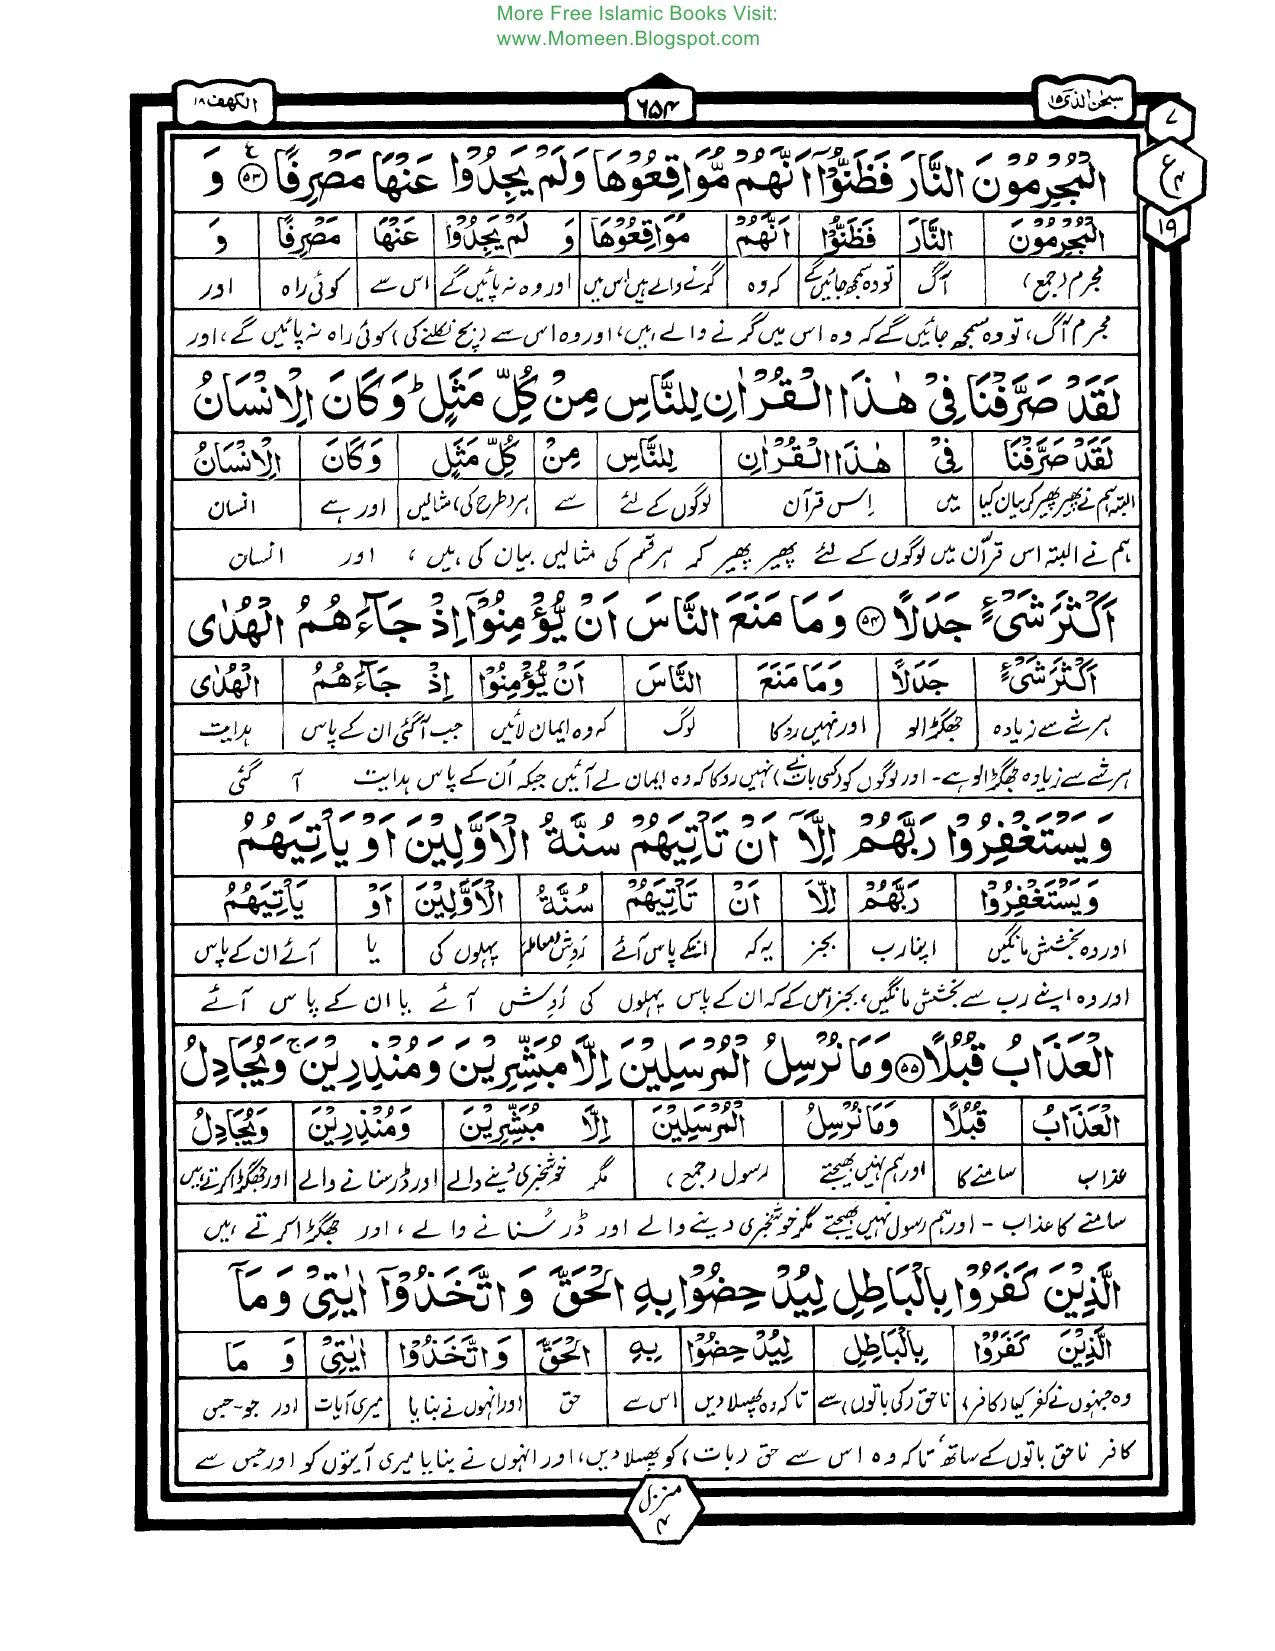 More Free Islamic Books Visit:
www.Momeen.Blogspot.com
سبحٰن الذی ۱۵
۶۵۴
الکہف ۱۸
۷
ع
۴
۱۹
الْمُجْرِمُوْنَ النَّارَ فَظَنُّوْۤا اَنَّهُمْ مُّوَاقِعُوْهَا وَلَمْ یَجِدُوْا عَنْهَا مَصْرِفًا ۵۳ وَ
الْمُجْرِمُوْنَ النَّارَ فَظَنُّوْۤا اَنَّهُمْ مُّوَاقِعُوْهَا وَ لَمْ یَجِدُوْا عَنْهَا مَصْرِفًا وَ
مجرم (جمع) آگ تو وہ سمجھ جائیں گے کہ وہ گرنے والے ہیں اس میں اور وہ نہ پائیں گے اس سے کوئی راہ اور
مجرم آگ، تو وہ سمجھ جائیں گے کہ وہ اس میں گرنے والے ہیں، اور وہ اس سے (بچ نکلنے کی) کوئی راہ نہ پائیں گے، اور
لَقَدْ صَرَّفْنَا فِیْ هٰذَا الْقُرْاٰنِ لِلنَّاسِ مِنْ كُلِّ مَثَلٍ ؕ وَكَانَ الْاِنْسَانُ
لَقَدْ صَرَّفْنَا فِیْ هٰذَا الْقُرْاٰنِ لِلنَّاسِ مِنْ كُلِّ مَثَلٍ وَكَانَ الْاِنْسَانُ
البتہ ہم نے پھیر پھیر کر بیان کیا میں اِس قرآن لوگوں کے لئے سے ہر (طرح کی) مثالیں اور ہے انسان
ہم نے البتہ اس قرآن میں لوگوں کے لئے پھیر پھیر کر ہر قسم کی مثالیں بیان کی ہیں، اور انسان
اَكْثَرَ شَیْءٍ جَدَلًا ۵۴ وَمَا مَنَعَ النَّاسَ اَنْ یُّؤْمِنُوْۤا اِذْ جَآءَهُمُ الْهُدٰى
اَكْثَرَ شَیْءٍ جَدَلًا وَمَا مَنَعَ النَّاسَ اَنْ یُّؤْمِنُوْۤا اِذْ جَآءَهُمُ الْهُدٰى
ہر شے سے زیادہ جھگڑالو اور نہیں روکا لوگ کہ وہ ایمان لائیں جب آگئی ان کے پاس ہدایت
ہر شے سے زیادہ جھگڑالو ہے۔ اور لوگوں کو (کسی بات نے) نہیں روکا کہ وہ ایمان لے آئیں جبکہ اُن کے پاس ہدایت آ گئی
وَیَسْتَغْفِرُوْا رَبَّهُمْ اِلَّاۤ اَنْ تَاْتِیَهُمْ سُنَّةُ الْاَوَّلِیْنَ اَوْ یَاْتِیَهُمُ
وَیَسْتَغْفِرُوْا رَبَّهُمْ اِلَّاۤ اَنْ تَاْتِیَهُمْ سُنَّةُ الْاَوَّلِیْنَ اَوْ یَاْتِیَهُمُ
اور وہ بخشش مانگیں اپنا رب بجز یہ کہ انکے پاس آئے رَوِش (معاملہ) پہلوں کی یا آئے ان کے پاس
اور وہ اپنے رب سے بخشش مانگیں، بجز اس کے کہ ان کے پاس پہلوں کی رَوِش آئے یا ان کے پاس آئے
الْعَذَابُ قُبُلًا ۵۵ وَمَا نُرْسِلُ الْمُرْسَلِیْنَ اِلَّا مُبَشِّرِیْنَ وَمُنْذِرِیْنَ ۚ وَیُجَادِلُ
الْعَذَابُ قُبُلًا وَمَا نُرْسِلُ الْمُرْسَلِیْنَ اِلَّا مُبَشِّرِیْنَ وَمُنْذِرِیْنَ وَیُجَادِلُ
عذاب سامنے کا اور ہم نہیں بھیجتے رسول (جمع) مگر خوشخبری دینے والے اور ڈر سنانے والے اور جھگڑا کرتے ہیں
سامنے کا عذاب - اور ہم رسول نہیں بھیجتے مگر خوشخبری دینے والے اور ڈر سُنانے والے، اور جھگڑا کرتے ہیں
الَّذِیْنَ كَفَرُوْا بِالْبَاطِلِ لِیُدْحِضُوْا بِهِ الْحَقَّ وَاتَّخَذُوْۤا اٰیٰتِیْ وَمَاۤ
الَّذِیْنَ كَفَرُوْا بِالْبَاطِلِ لِیُدْحِضُوْا بِهِ الْحَقَّ وَاتَّخَذُوْۤا اٰیٰتِیْ وَ مَا
وہ جنہوں نے کفر کیا (کافر) ناحق (کی باتوں) سے تاکہ وہ پھسلا دیں اس سے حق اور انہوں نے بنایا میری آیات اور جو-جس
کافر ناحق باتوں کے ساتھ، تاکہ وہ اس سے حق (بات) کو پھسلا دیں، اور انہوں نے بنایا میری آیتوں کو اور جس سے
منزل
۴